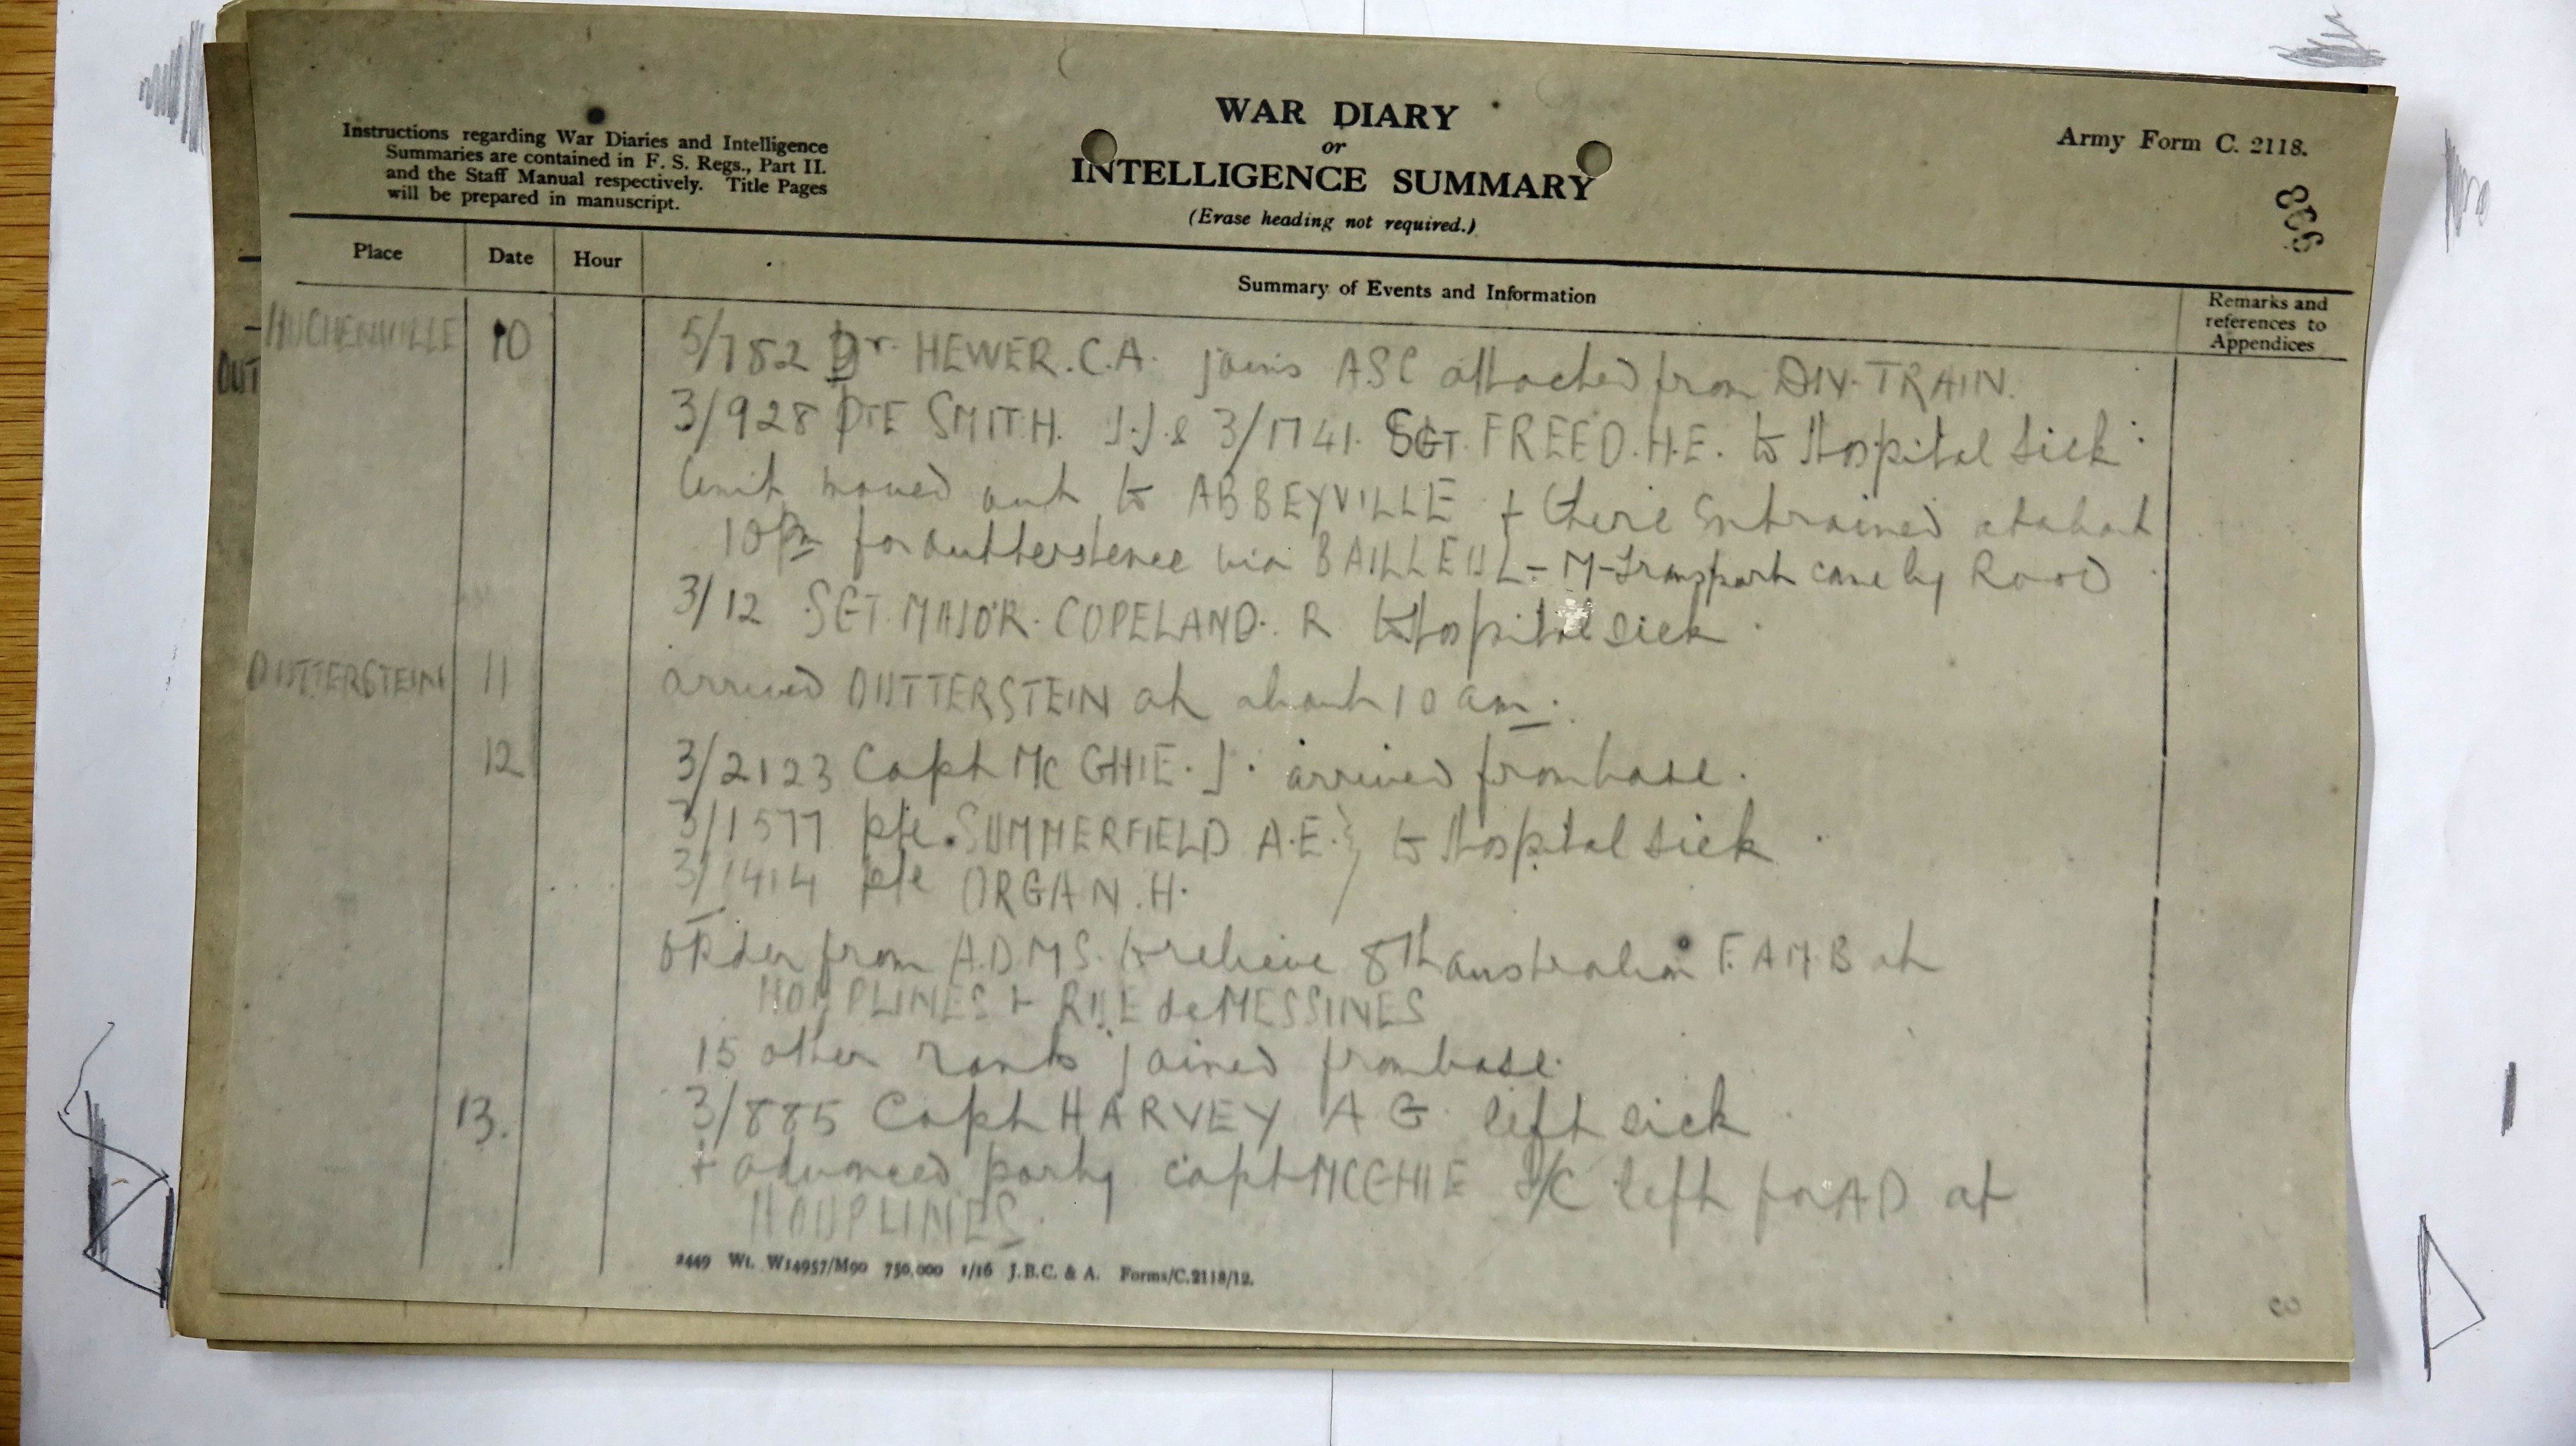 Instructions regarding War Diaries and Intelligence
Summaries are contained in F. S. Regs., Part II.
and the Staff Manual respectively. Title Pages
will be prepared in manuscript.
WAR DIARY
or
INTELLIGENCE SUMMARY
(Erase heading not required.)
Army Form C. 2118.
Place Date Hour Summary of Events and Information Remarks and references to Appendices
OUT
HUCHENVILLE 10 5/782 Dr. HEWER.C.A. joins ASC attached from DIV. TRAIN.
3/928 PTE SMITH. J.J. & 3/1741. SGT. FREED.H.E. to Hospital sick
Unit moved out to ABBEYVILLE + there Entrained at about
10 pm for outterstene via BAILLEUL - M-Transport came by Road
3/12 SGT. MAJOR. COPELAND. R to Hospital sick.
OUTTERSTEIN 11 arrived OUTTERSTEIN at about 10 am.
12 3/2123 Capt Mc GHIE. J. arrived from base.
3/1577 pte. SUMMERFIELD A.E. } to Hospital sick
3/1414 pte ORGAN. H.
Order from A.D.M.S. to relieve 8th australian F. AMB at
HOUPLINES + RUE de MESSINES
15 other ranks joined from base.
13. 3/885 Capt HARVEY A G left sick
+ advanced party capt MCGHIE I/C left for AD at
HOUPLINES.
2449 Wt. W14957/M90 750,000 1/16 J.B.C. & A. Forms/C.2118/12.